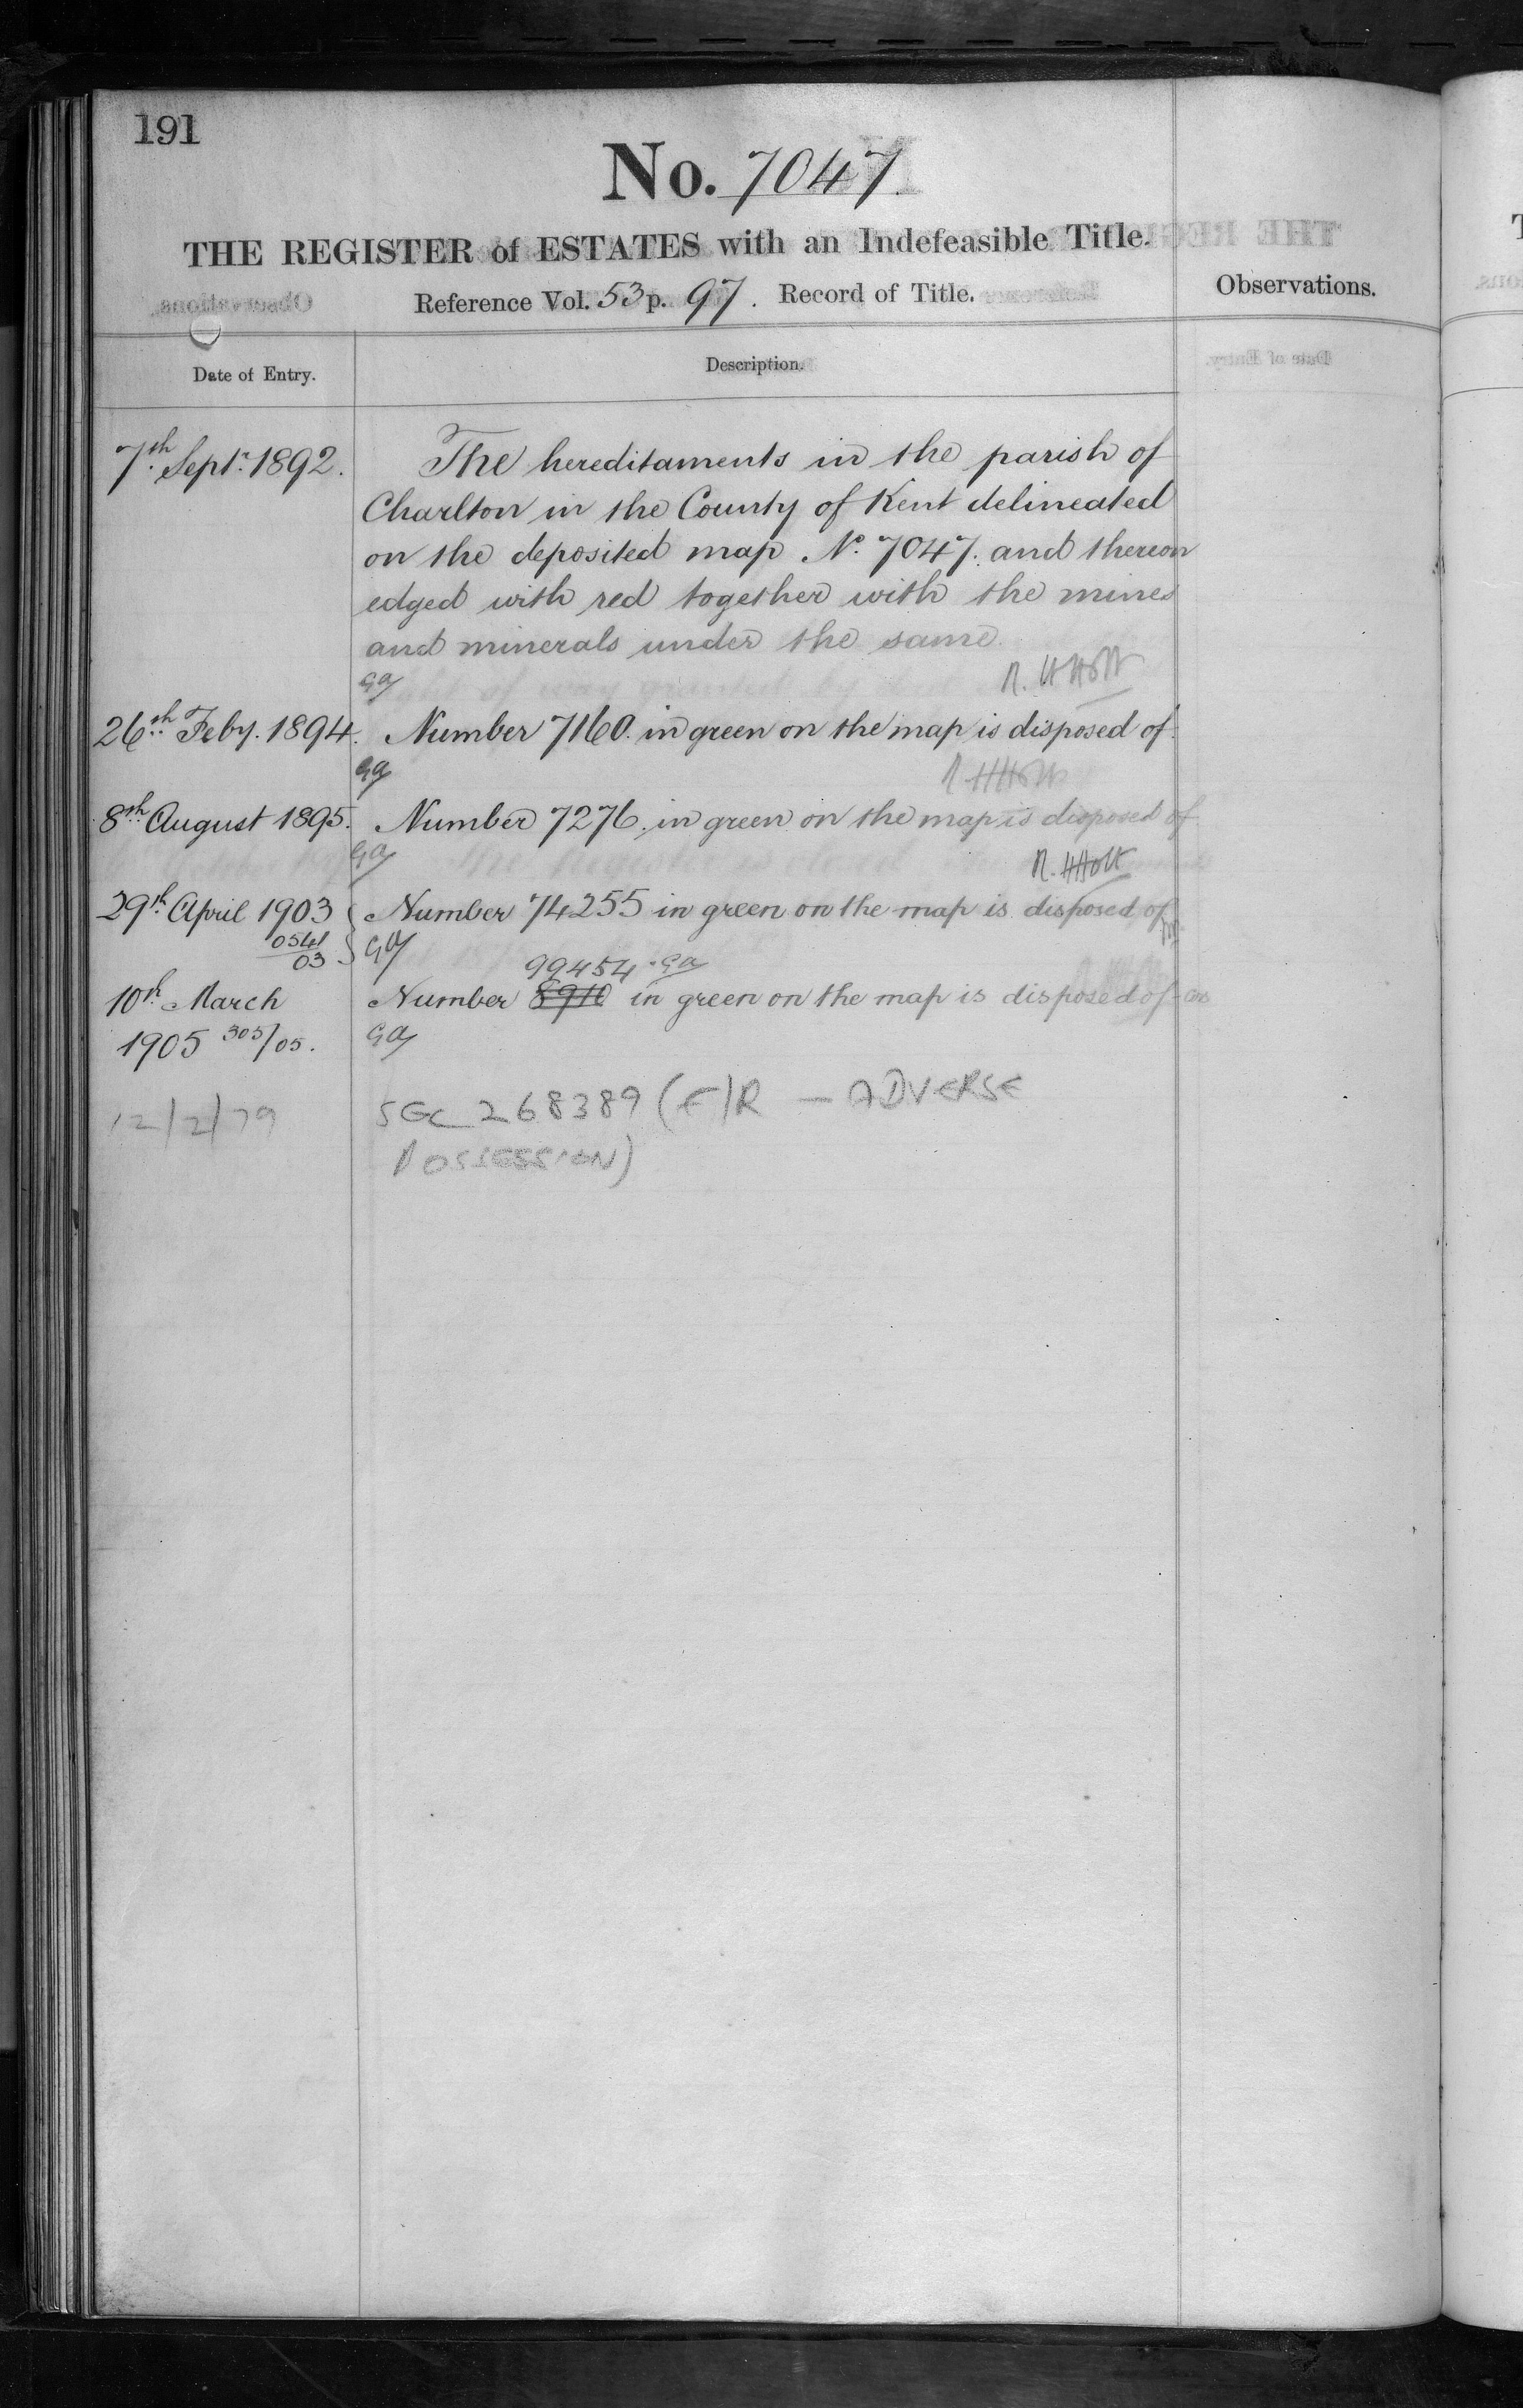 191
No. 7047.
THE REGISTER of ESTATES with an Indefeasible Title.
Reference Vol. 53 p. 97. Record of Title.
Observations.
Date of Entry.
Description.
7th Septr. 1892.
The hereditaments in the parish of
Charlton in the County of Kent delineated
on the deposited map No. 7047. and thereon
edged with red together with the mines
and minerals under the same.
GA
R. H Holt
26th Feby. 1894.
Number 7160. in green on the map is disposed of.
GA
R. H Holt
8th August 1895.
Number 7276. in green on the map is disposed of.
GA
R. H Holt
29th April 1903
Number 74255 in green on the map is disposed of
0541/03
GA
99454 GA
10th March
Number 8910 in green on the map is disposed of
1905 305/05.
GA
12/2/79
SGL 268389 (F/R — ADVERSE
POSSESSION)